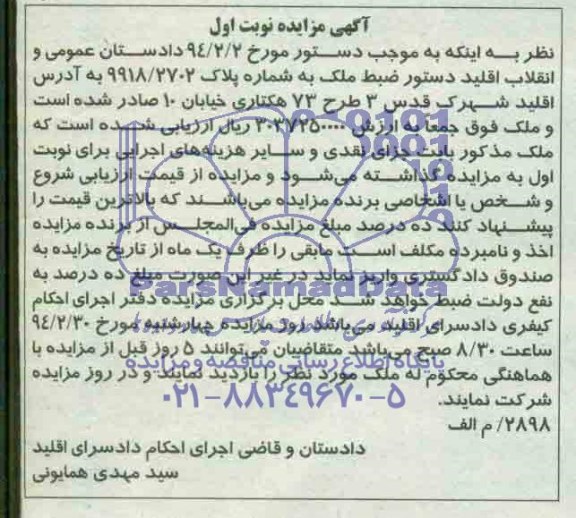 آگهی مزایده نوبت اول
نظر به اینکه به موجب دستور مورخ ۹٤/۲/۲ دادستان عمومی و
انقلاب اقلید دستور ضبط ملک به شماره پلاک ۹۹۱۸/۲۷۰۲ به آدرس
اقلید شهرک قدس ۳ طرح ۷۳ هکتاری خیابان ۱۰ صادر شده است
و ملک فوق جمعا به ارزش ۳۰۳۷۲۵۰۰۰۰ ریال ارزیابی شده است که
ملک مذکور بابت جزای نقدی و سایر هزینه‌های اجرایی برای نوبت
اول به مزایده گذاشته می‌شود و مزایده از قیمت ارزیابی شروع
و شخص یا اشخاصی برنده مزایده می‌باشند که بالاترین قیمت را
پیشنهاد کنند ده درصد مبلغ مزایده فی‌المجلس از برنده مزایده
اخذ و نامبرده مکلف است مابقی را ظرف یک ماه از تاریخ مزایده به
صندوق دادگستری واریز نماید در غیر این صورت مبلغ ده درصد به
نفع دولت ضبط خواهد شد محل برگزاری مزایده دفتر اجرای احکام
کیفری دادسرای اقلید می‌باشد روز مزایده چهارشنبه مورخ ۹٤/۲/۳۰
ساعت ۸/۳۰ صبح می‌باشد متقاضیان می‌توانند ۵ روز قبل از مزایده با
هماهنگی محکوم له ملک مورد نظر را بازدید نمایند و در روز مزایده
شرکت نمایند.
۲۸۹۸/ م الف
دادستان و قاضی اجرای احکام دادسرای اقلید
سید مهدی همایونی
ParsNamadData
پایگاه اطلاع رسانی مناقصه و مزایده
۰۲۱-۸۸۳٤۹۶۷۰-۵